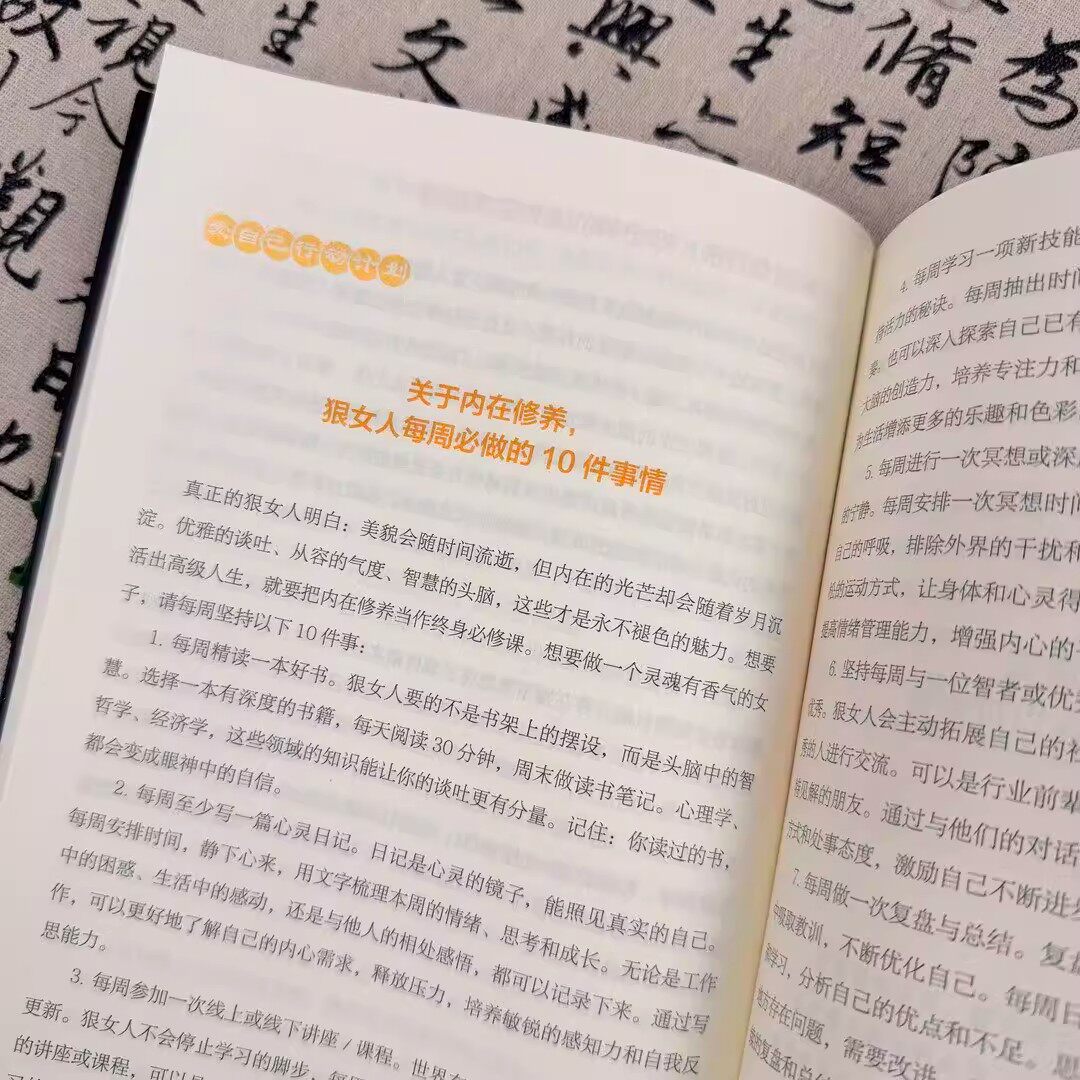 自己行动计划
关于内在修养，
狠女人每周必做的 10 件事情
真正的狠女人明白：美貌会随时间流逝，但内在的光芒却会随着岁月沉
淀。优雅的谈吐、从容的气度、智慧的头脑，这些才是永不褪色的魅力。想要
活出高级人生，就要把内在修养当作终身必修课。想要做一个灵魂有香气的女
子，请每周坚持以下 10 件事：
1. 每周精读一本好书。狠女人要的不是书架上的摆设，而是头脑中的智
慧。选择一本有深度的书籍，每天阅读 30 分钟，周末做读书笔记。心理学、
哲学、经济学，这些领域的知识能让你的谈吐更有分量。记住：你读过的书，
都会变成眼神中的自信。
2. 每周至少写一篇心灵日记。日记是心灵的镜子，能照见真实的自己。
每周安排时间，静下心来，用文字梳理本周的情绪、思考和成长。无论是工作
中的困惑、生活中的感动，还是与他人的相处感悟，都可以记录下来。通过写
作，可以更好地了解自己的内心需求，释放压力，培养敏锐的感知力和自我反
思能力。
3. 每周参加一次线上或线下讲座 / 课程。世界
更新。狠女人不会停止学习的脚步，每
的讲座或课程，可以
4. 每周学习一项新技能
持活力的秘诀。每周抽出时间
奏。也可以深入探索自己已有
大脑的创造力，培养专注力和
为生活增添更多的乐趣和色彩
5. 每周进行一次冥想或深
的宁静。每周安排一次冥想时间
自己的呼吸，排除外界的干扰和
的运动方式，让身体和心灵得
提高情绪管理能力，增强内心的
6. 坚持每周与一位智者或优
优秀。狠女人会主动拓展自己的社
秀的人进行交流。可以是行业前辈
见解的朋友。通过与他们的对话
方式和处事态度，激励自己不断进
7. 每周做一次复盘与总结。复盘
中吸取教训，不断优化自己。每周
和学习，分析自己的优点和不足。思
地方存在问题，需要改进
的复盘和总结
視 生 文 興 生 脩
今 短
觀
也